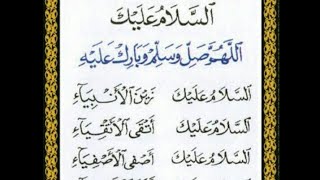 اَلسَّلَامُ عَلَيْكَ
اَللّٰهُمَّ صَلِّ وَسَلِّمْ وَبَارِكْ عَلَيْهِ
اَلسَّلَامُ عَلَيْكَ زَيْنَ الْأَنْبِيَاءِ
اَلسَّلَامُ عَلَيْكَ أَتْقَى الْأَتْقِيَاءِ
اَلسَّلَامُ عَلَيْكَ أَصْفَى الْأَصْفِيَاءِ